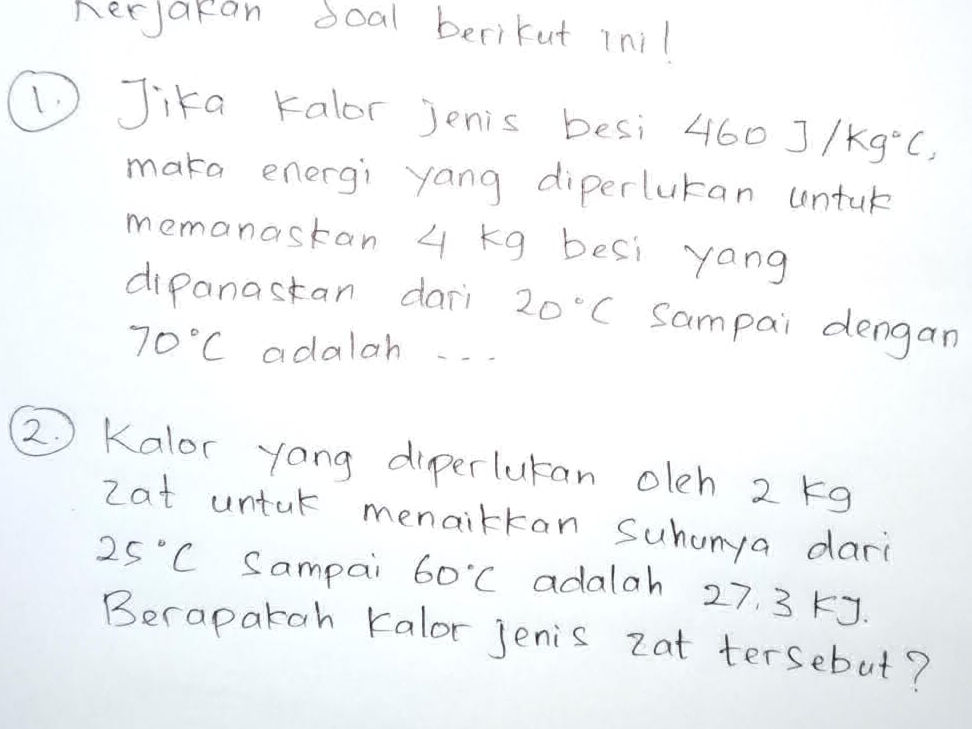 Kerjakan Soal berikut ini!
1. Jika kalor jenis besi 460 J/kg°C,
maka energi yang diperlukan untuk
memanaskan 4 kg besi yang
dipanaskan dari 20°C sampai dengan
70°C adalah ...
2. Kalor yang diperlukan oleh 2 kg
zat untuk menaikkan suhunya dari
25°C sampai 60°C adalah 27,3 kJ.
Berapakah kalor jenis zat tersebut?